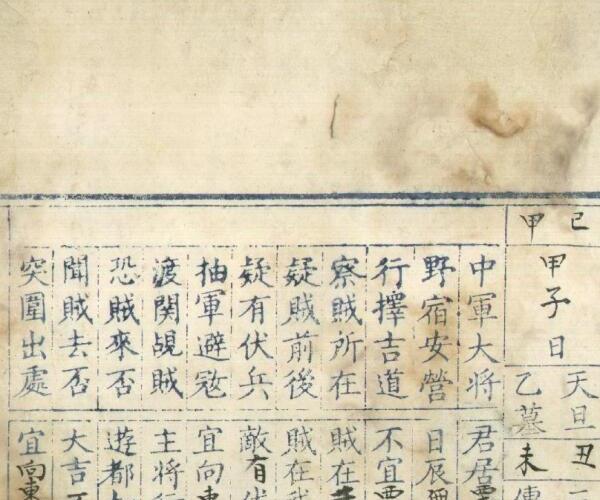 己
甲
甲子日
天旦
乙墓
丑
未
中軍大将
野宿安營
行擇吉道
察賊所在
疑賊前後
疑有伏兵
抽軍避𡨥
渡関覘賊
恐賊來否
聞賊去否
突圍出處
君居
日辰
不宜
賊在
賊在
敵有伏
宜向東
主将行
遊都
大吉
宜向東